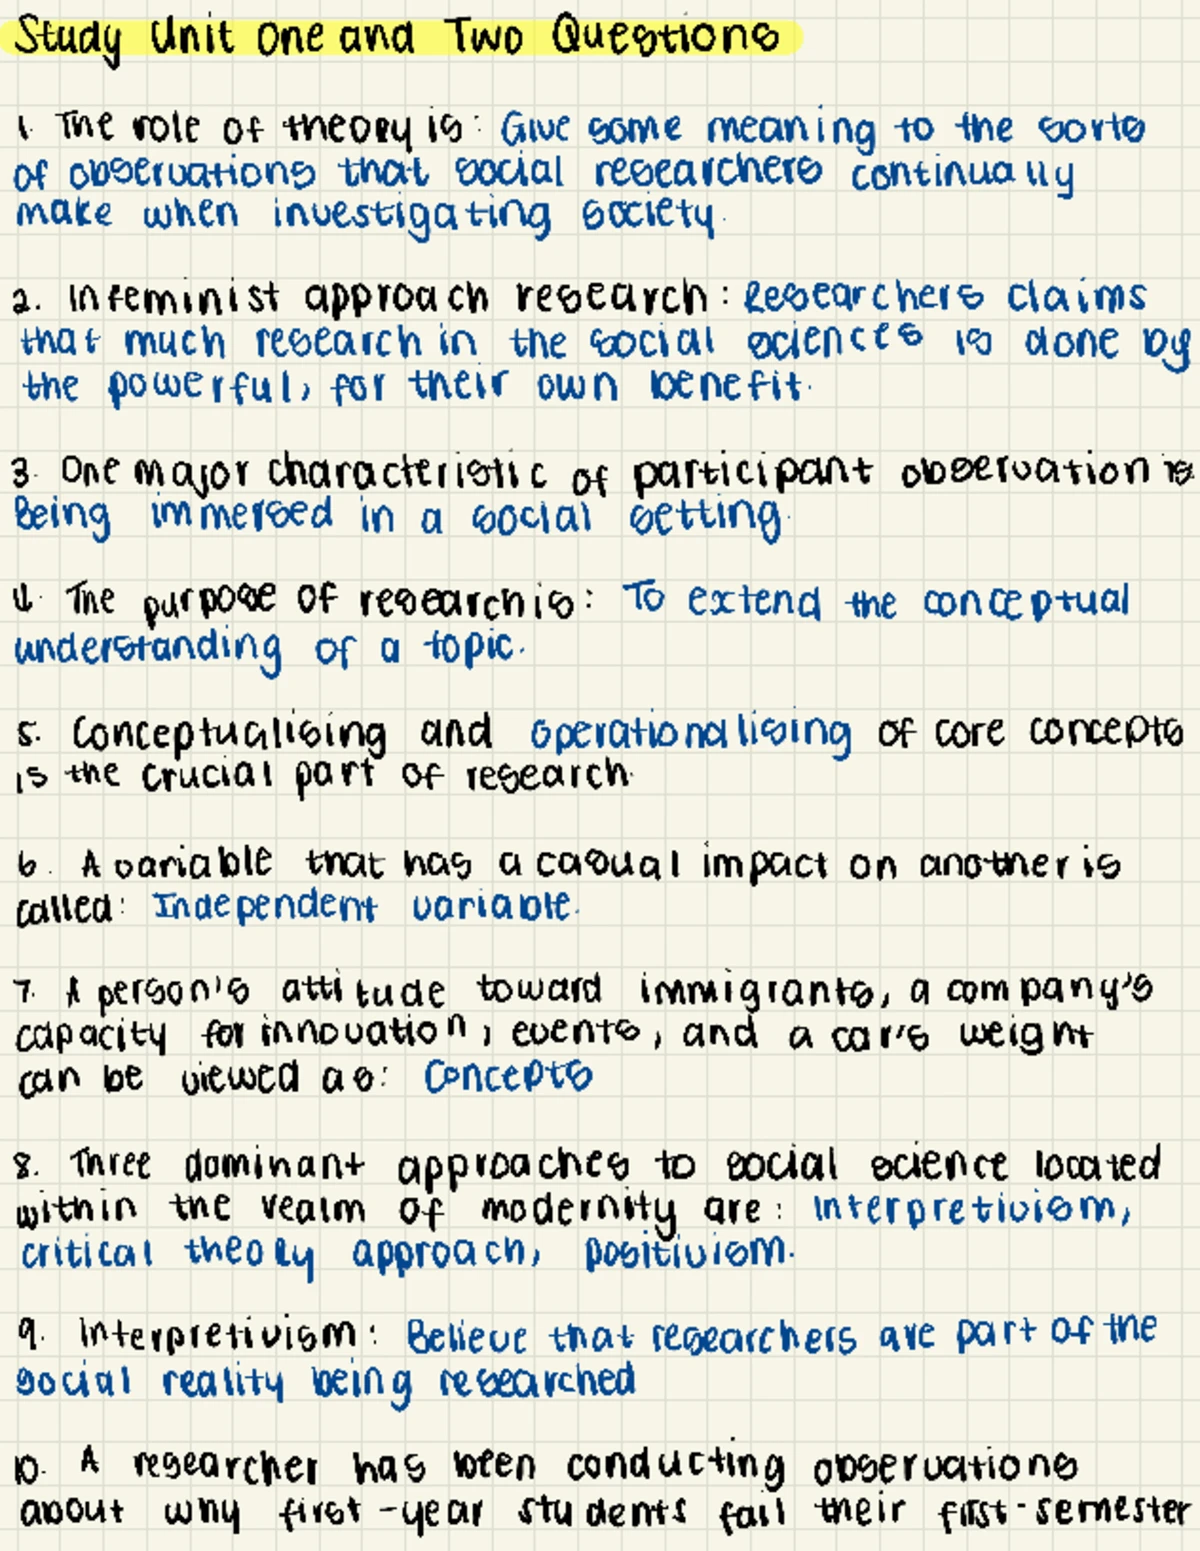 Study Unit One and Two Questions
1. The role of theory is: Give some meaning to the sorts
of observations that social researchers continually
make when investigating society.
2. In feminist approach research: Researchers claims
that much research in the social sciences is done by
the powerful, for their own benefit.
3. One major characteristic of participant observation is
Being immersed in a social setting.
4. The purpose of research is: To extend the conceptual
understanding of a topic.
5. Conceptualising and operationalising of core concepts
is the crucial part of research.
6. A variable that has a casual impact on another is
called: Independent variable.
7. A person's attitude toward immigrants, a company's
capacity for innovation, events, and a car's weight
can be viewed as: Concepts
8. Three dominant approaches to social science located
within the realm of modernity are: Interpretivism,
critical theory approach, positivism.
9. Interpretivism: Believe that researchers are part of the
social reality being researched
10. A researcher has been conducting observations
about why first-year students fail their first-semester